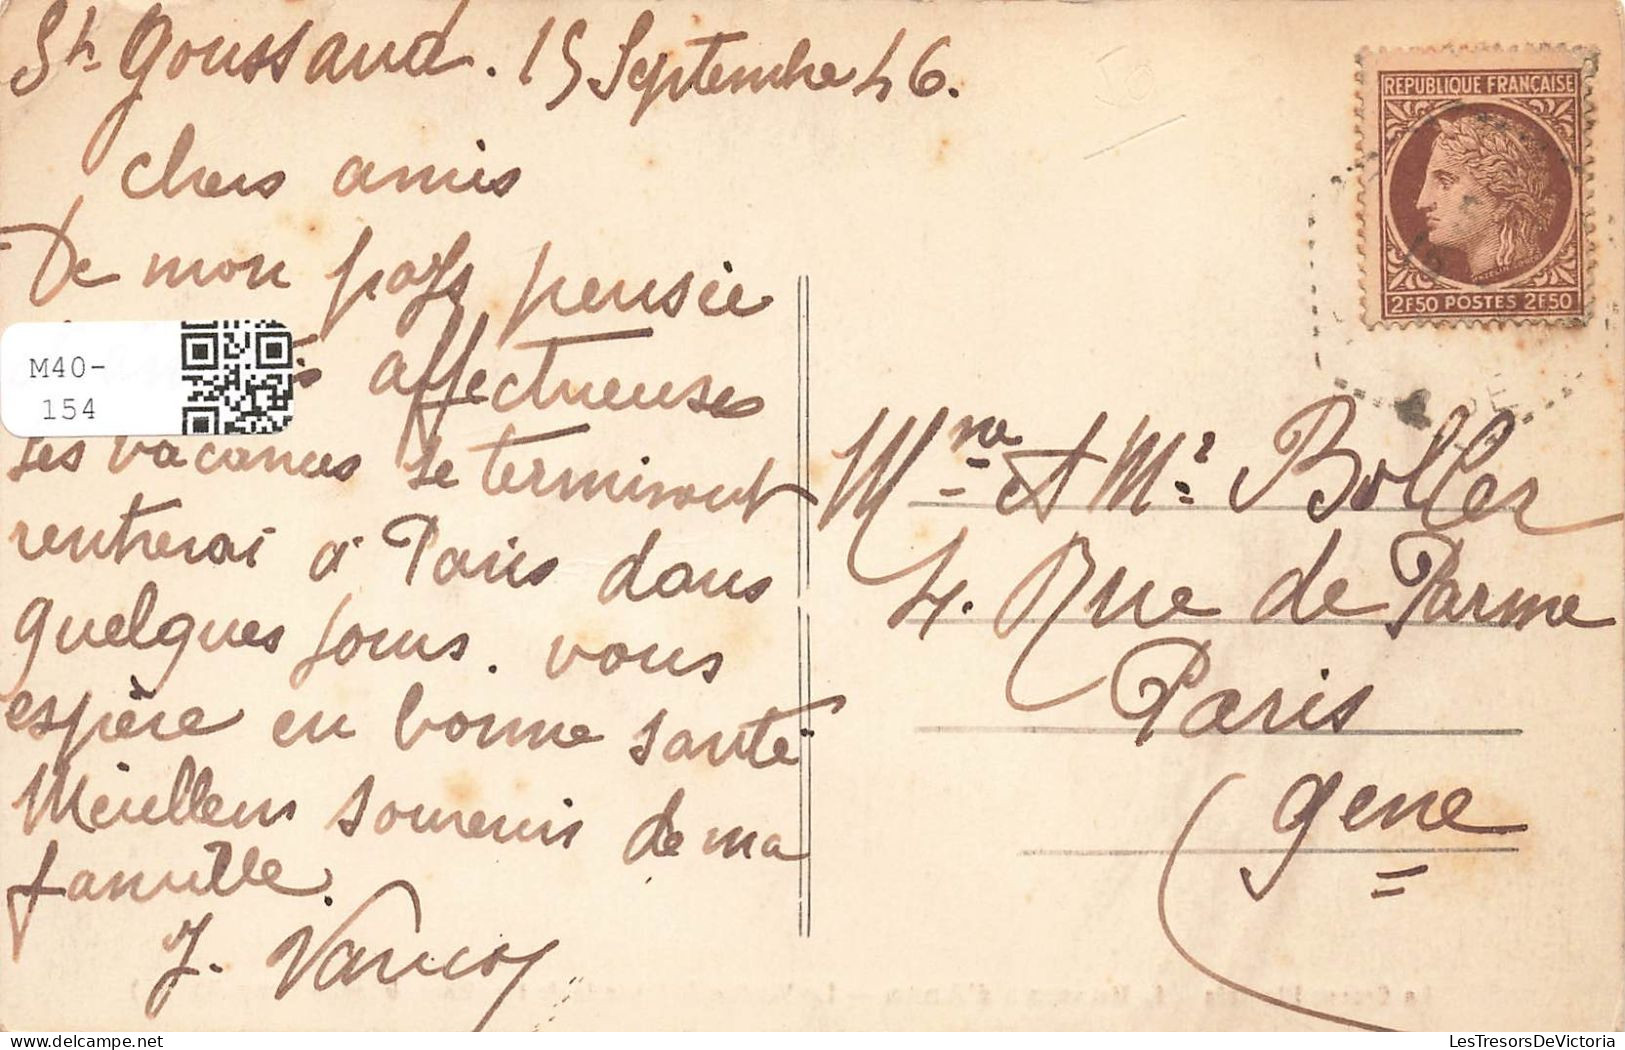 St Goussaud. 15 Septembre 46.
chers amis
De mon pays pensée
affectueuses
Les vacances se terminent
rentrerai à Paris dans
quelques jours. vous
espère en bonne santé
Meilleurs souvenirs de ma
famille.
REPUBLIQUE FRANÇAISE
2F50 POSTES 2F50
Mme et Mr Boller
4. Rue de Parme
Paris
9eme
M40-
154
LesTresorsDeVictoria